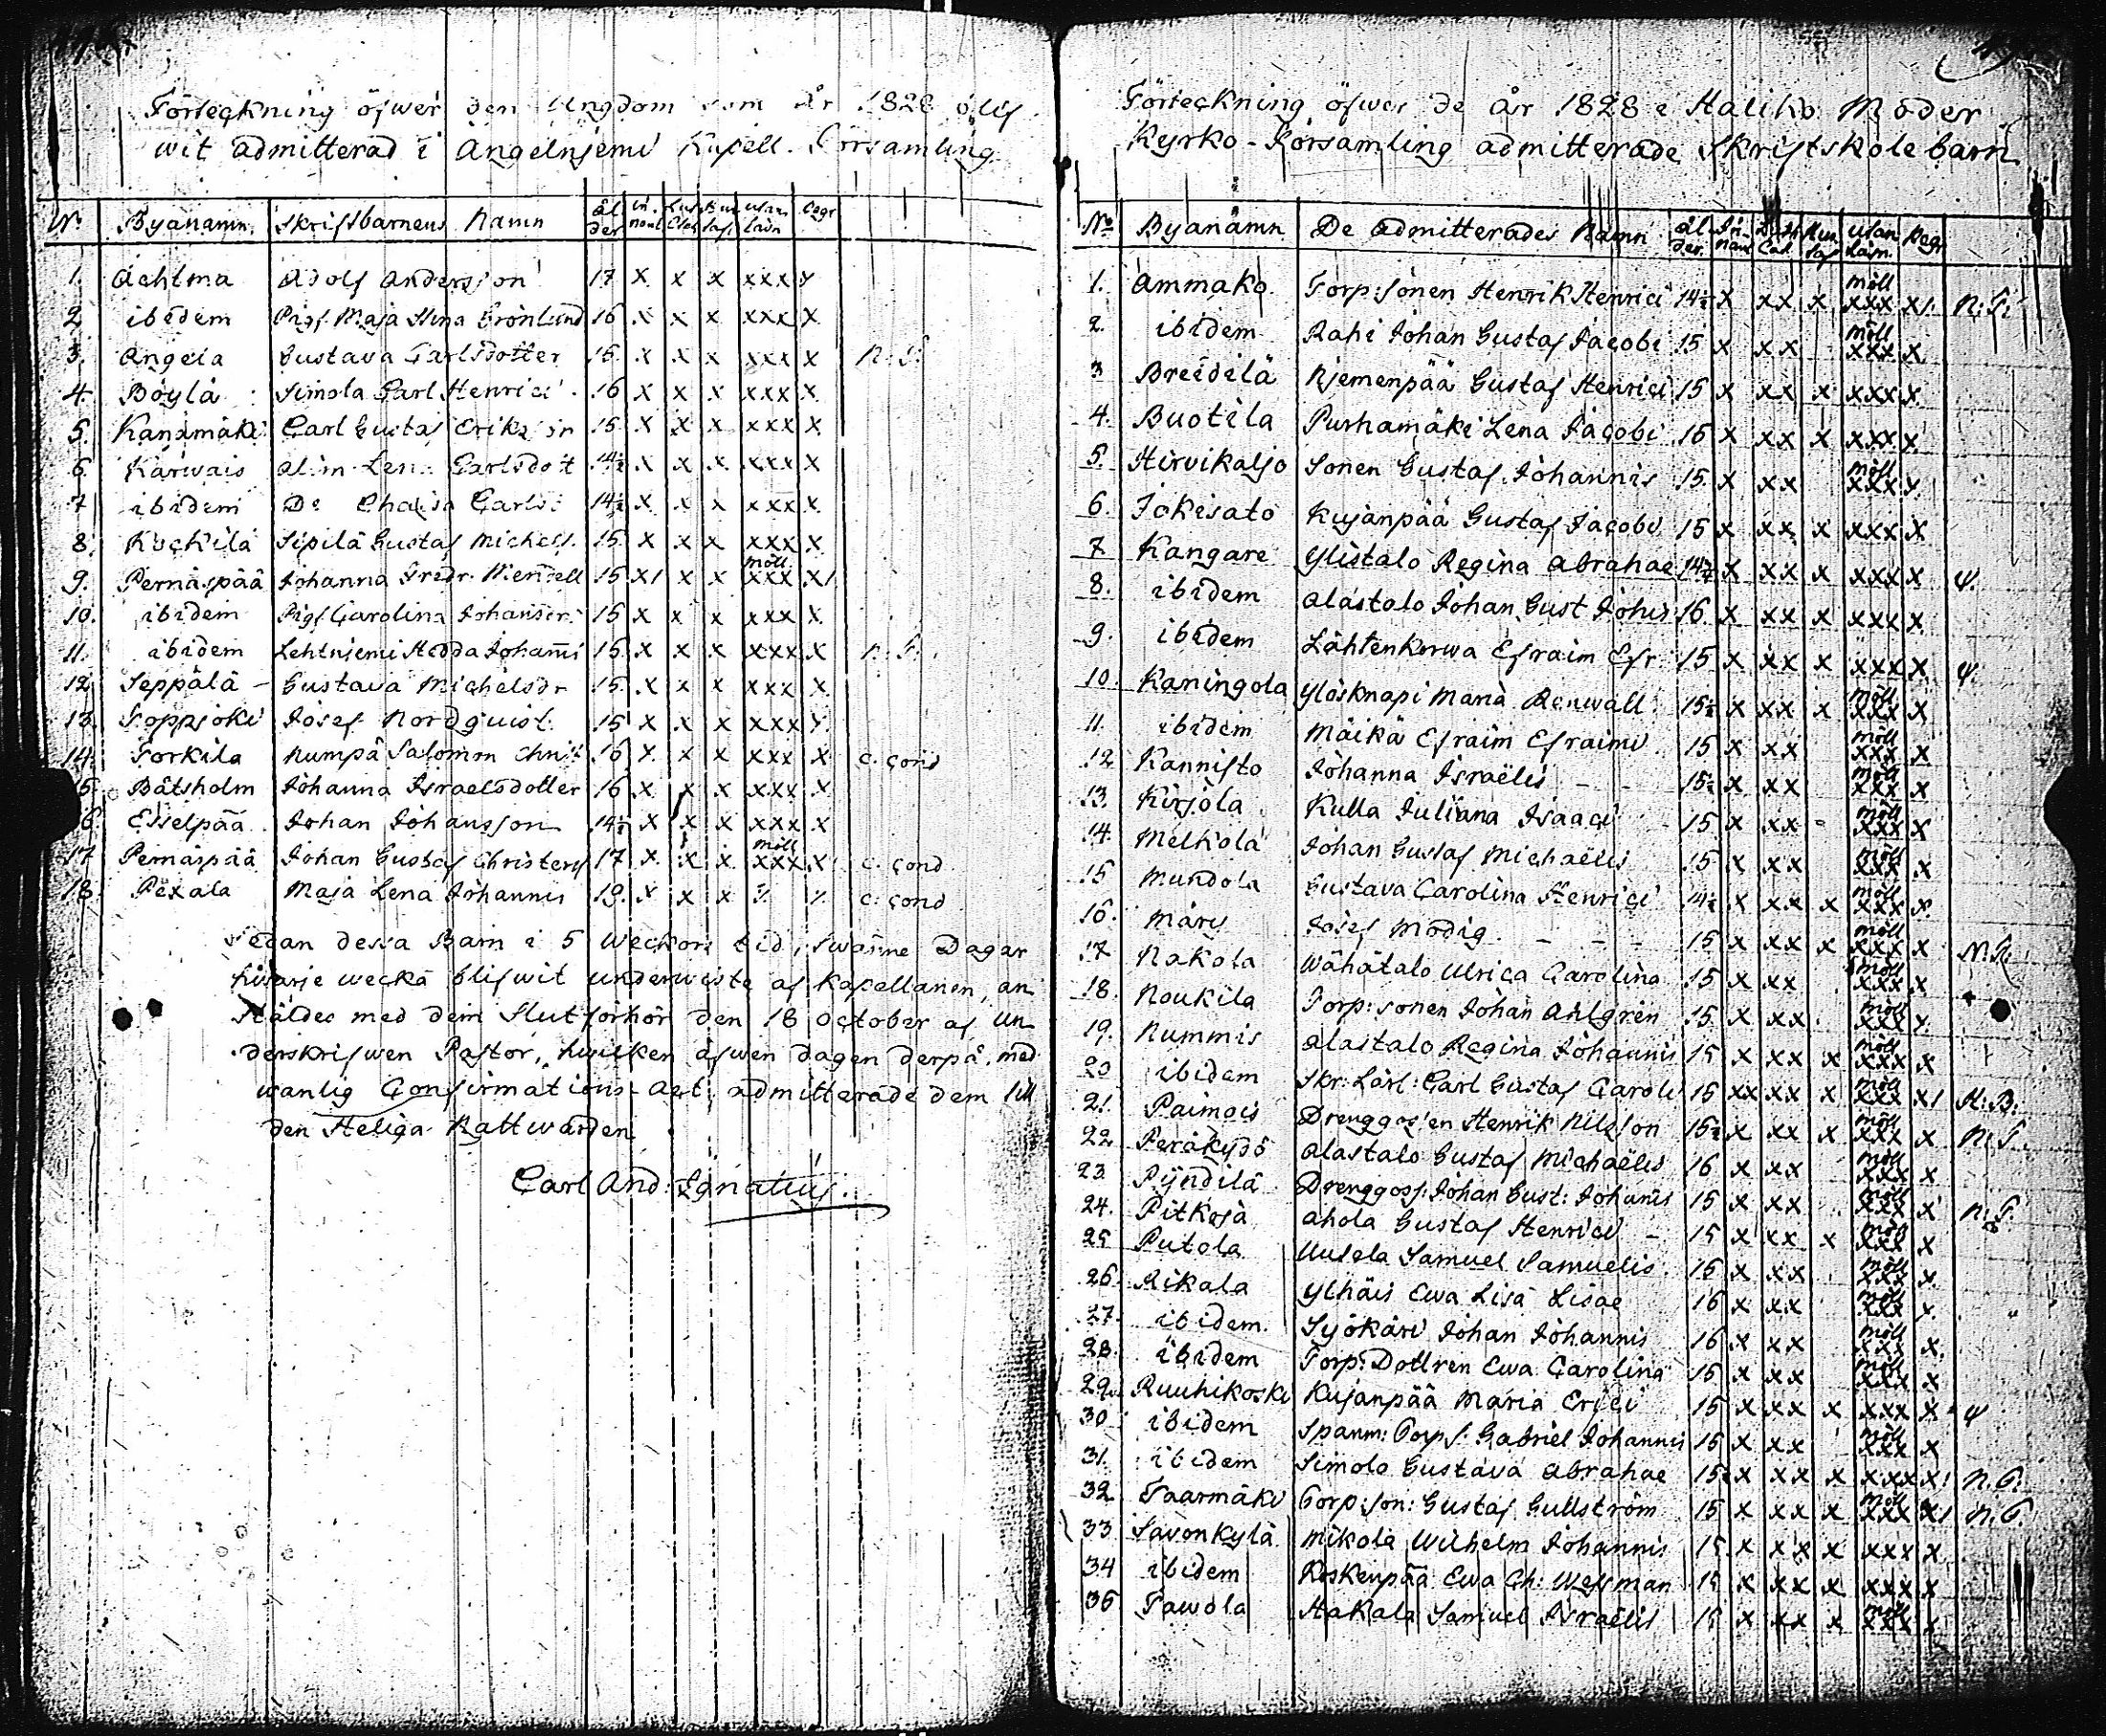 Förteckning öfwer den Ungdom som År 1828 blif
wit admitterad i Angelniemi Kapell-Församling
No Byanamn. Skriftbarnens Namn ålder in. nant Luth Cat. Hus taf. utan läsn Begr
1. Achtma Adolf Andersson 17 x x x xxx x
2 ibidem Pigs. Maja Stina Grönlund 16 x x x xxx x
3. Angela Gustava Carlsdotter 15. x x x xxx x n. T.
4. Böylä Simola Carl Henrici 16 x x x xxx x
5. Kanamäki Carl Gustaf Eriksson 15 x x x xxx x
6. Karwais Lena Carlsdott 14½ x x x xxx x
7 ibidem Do Carls: 14½ x x x xxx x
8. Kockila Sipilä Gustaf Michels. 15. x x x xxx x
9. Pernäspää Johanna Fredr. Wendell 15 x/ x x möll xxx x/
10. ibidem Pigs. Carolina Johansdr. 15 x x x xxx x
11. ibidem Lehtniemi Hedda Johanni 15 x x x xxx x n. T.
12 Seppälä - Gustava Michelsdr 15. x x x xxx x
13. Toppjoki Josef Nordquist 15 x x x xxx x
14. Torkila Rumpä Salomon 16 x x x xxx x c. cond
15. Båtsholm Johanna Israelsdotter 16 x x x xxx x
16. Esselpää Johan Johansson 14½ x x x xxx x
17 Pernäspää Johan Gustaf Christers 17 x x x möll xxx x c. cond
18. Pexala Maja Lena Johannis 19. x x x c. cond
Sedan dessa Barn i 5 Weckors tid, twänne Dagar
hwarje wecka blifwit underwiste af Kapellanen, an
stäldes med dem Slutförhör den 18 October af Un
derskrifwen Pastor, hwilken äfwen dagen derpå, med
wanlig Confirmations-Act, admitterade dem till
den Heliga Nattwarden.
Carl And: Ignatius.
Förteckning öfwer de år 1828 i Haliko Moder
Kyrko-Församling admitterade Skriftskolebarn
No Byanamn De admitterades Namn ålder. In- nant Luth Cat. Hus taf utan läsn. Begr
1. Ammako. Torp: sonen Henrik Henrici 14½ x xx x möll xxx x/. n: T:
2. ibidem Rahi Johan Gustaf Jacobi 15 x xx möll xxx x
3 Breidilä Njemenpää Gustaf Henrici 15 x xx x xxx x
4. Buotila Purhamäki Lena Jacobi 16 x xx x xxx x
5. Hirvikaljo Sonen Gustaf Johannis 15 x xx möll xxx x
6. Jokisato Kujanpää Gustaf Jacobi 15 x xx x xxx x
7 Kangare Ylistalo Regina Abrahae 14½ x xx x xxx x ψ.
8. ibidem Alastalo Johan Gust Johis 16 x xx x xxx x
9. ibidem Lähtenkorwa Efraim Efr. 15 x xx x xxx x ψ.
10. Kaningola Ylösknapi Maria Renwall 15½ x xx x möll xxx x
11. ibidem Mäikä Efraim Efraimi 15 x xx möll xxx x
12 Kannisto Johanna Israëlis - - 15½ x xx möll xxx x
13. Kirjola Kulla Juliana Isaaci 15 x xx - möll xxx x
14. Melkola Johan Gustaf Michaëlis 15 x xx möll xxx x
15 Mundola Gustava Carolina Henrici 14½ x xx x möll xxx x
16. Märy Josef Modig - - - 15 x xx x möll xxx x N. T.
17 Nakola Wähätalo Ulrica Carolina 15 x xx möll xxx x
18. Noukila Torp: sonen Johan Ahlgren 15 x xx möll xxx x
19. Nummis Alastalo Regina Johannis 15 x xx x möll xxx x
20 ibidem Skr: Lärl: Carl Gustaf Caroli 15 xx xx x möll xxx x/ H: B:
21. Paimois Drenggossen Henrik Nilsson 15½ x xx x möll xxx x n. T.
22 Peräkylä Alastalo Gustaf Michaëlis 16 x xx möll xxx x
23. Pyndilä Drenggoss: Johan Gust: Johanis 15 x xx möll xxx x n. T.
24. Pitkoja Ahola Gustaf Henrici - 15 x xx x möll xxx x
25 Putola Uusela Samuel Samuelis. 15 x xx möll xxx x
26. Rikala Ylhäis Ewa Lisa Lisae 16 x xx möll xxx x
27. ibidem. Syökäri Johan Johannis 16 x xx möll xxx x.
28. ibidem Torp: Dottren Ewa Carolina 15 x xx möll xxx x
29. Ruuhikoski Kujanpää Maria Erici 15 x xx x xxx x ψ
30. ibidem Spanm: Torp s: Gabriel Johannis 16 x xx möll xxx x
31. ibidem Simola Gustava Abrahae 15½ x xx x xxx x/ n. T.
32. Taarmäki Torp: son: Gustaf Gullström 15 x xx x möll xxx x/ n. T.
33 Savonkylä Mikola Wilhelm Johannis 15 x xx x xxx x
34 ibidem Koskenpää Ewa Ch: Wessman 15 x xx x xxx x
35 Tawola Hakala Samuel Israëlis 15 x xx x möll xxx x